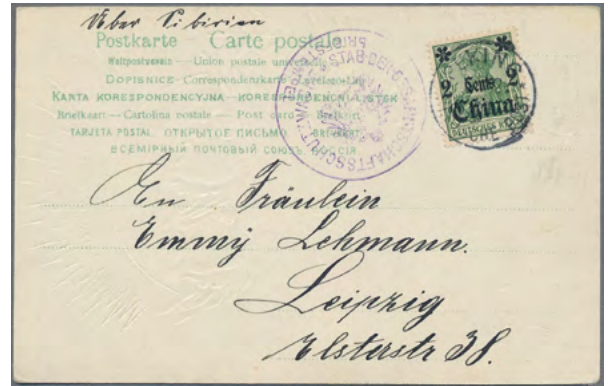 Über Sibirien
Postkarte — Carte postale
Weltpostverein — Union postale universelle
DOPISNICE - Correspondenzkarte - Levelező-Lap
KARTA KORESPONDENCYJNA — KORESPONDENČNI LISTEK
Briefkaart — Cartolina postale — Post card — Brefkort
TARJETA POSTAL ОТКРЫТОЕ ПИСЬМО — BREVKORT
ВСЕМІРНЫЙ ПОЧТОВЫЙ СОЮЗЪ РОССІЯ
STAB DER GESANDTSCHAFTSSCHUTZWACHE
PEKING
2 Cents 2
China
DEUTSCHES
An Fräulein
Emmy Lehmann.
Leipzig
Elsterstr 38.